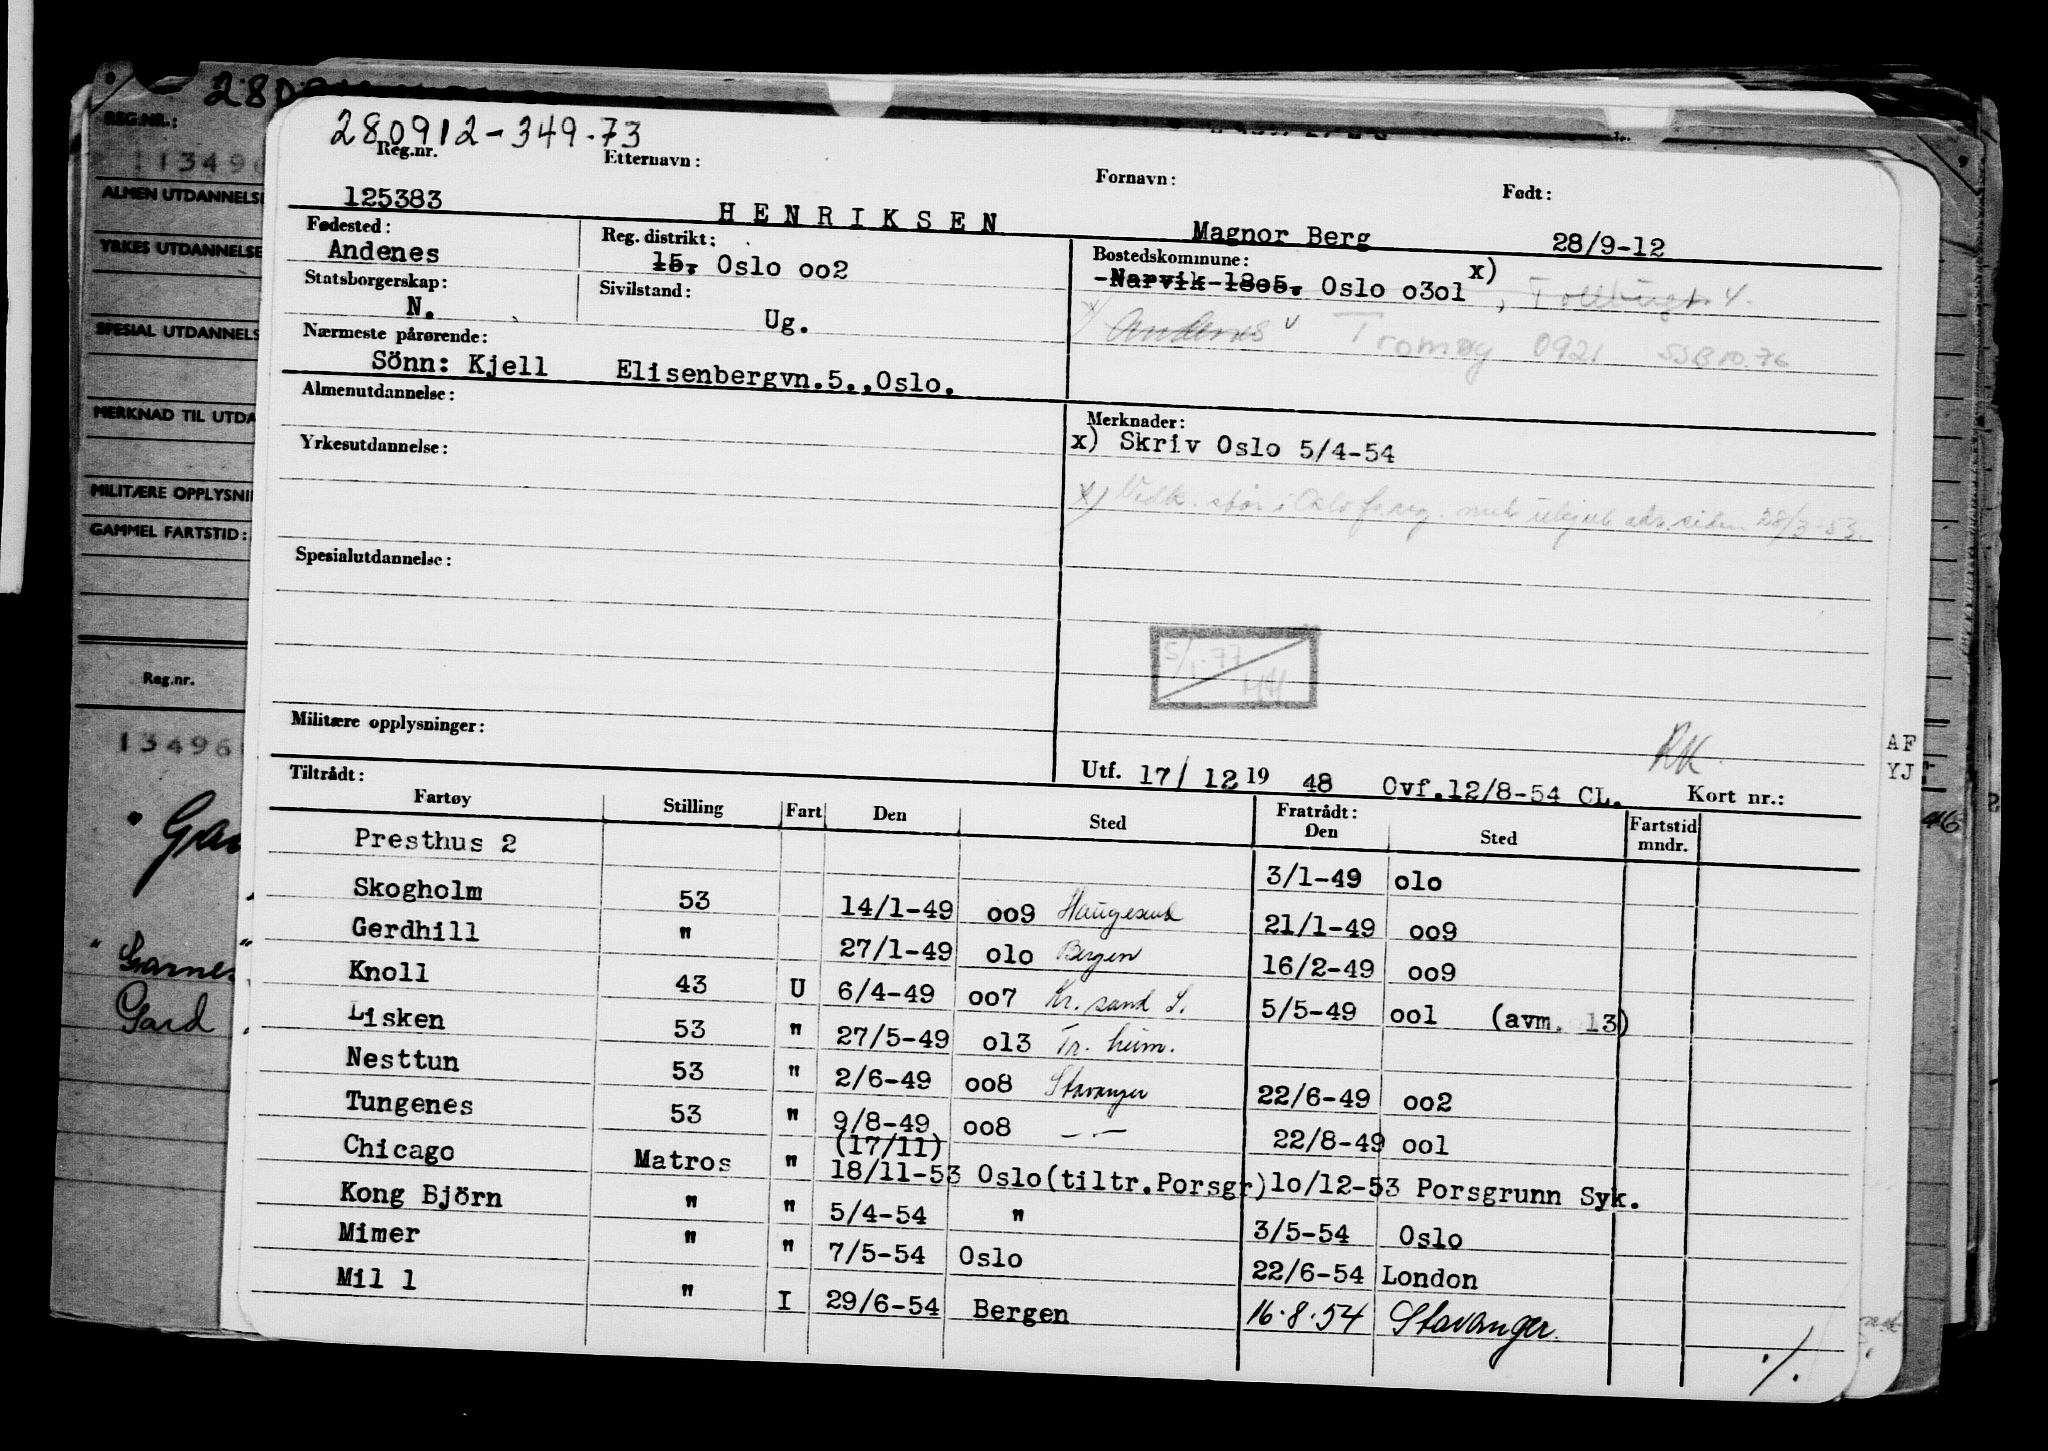 280912-349.73
Reg.nr. Etternavn: Fornavn: Født:
125383 HENRIKSEN Magnor Berg 28/9-12
Fødested: Reg. distrikt: Bostedskommune:
Andenes 15, Oslo oo2 -Narvik-18o5, Oslo o3ol x)
Statsborgerskap: Sivilstand:
N. Ug. Andenes Tromøy 0921 SSB 10.76
Nærmeste pårørende:
Sönn: Kjell Elisenbergvn.5.,Oslo.
Almenutdannelse: Merknader:
x) Skriv Oslo 5/4-54
Yrkesutdannelse:
x) siden 28/3-53
Spesialutdannelse:
5/1-77
HH
Militære opplysninger:
RK
Utf. 17/ 12 19 48 Ovf.12/8-54 CL. Kort nr.:
Tiltrådt: Fratrådt:
Fartøy Stilling Fart Den Sted Den Sted Fartstid mndr.
Presthus 2 3/1-49 olo
Skogholm 53 14/1-49 oo9 Haugesund 21/1-49 oo9
Gerdhill " 27/1-49 olo Bergen 16/2-49 oo9
Knoll 43 U 6/4-49 oo7 Kr. sand S. 5/5-49 ool (avm. o13)
Lisken 53 " 27/5-49 ol3 Tr. heim.
Nesttun 53 " 2/6-49 oo8 Stavanger 22/6-49 oo2
Tungenes 53 " 9/8-49 oo8 —.— 22/8-49 ool
(17/11)
Chicago Matros " 18/11-53 Oslo(tiltr.Porsgr)lo/12-53 Porsgrunn Syk.
Kong Björn " " 5/4-54 " 3/5-54 Oslo
Mimer " " 7/5-54 Oslo 22/6-54 London
Mil 1 " I 29/6-54 Bergen 16.8.54 Stavanger.
./.
REG.NR.:
113496
ALMEN UTDANNELSE
YRKES UTDANNELSE
SPESIAL UTDANNELS
MERKNAD TIL UTDA
MILITÆRE OPPLYSNI
GAMMEL FARTSTID:
Reg.nr.
13496
Garnes
Gard
AF
YJ